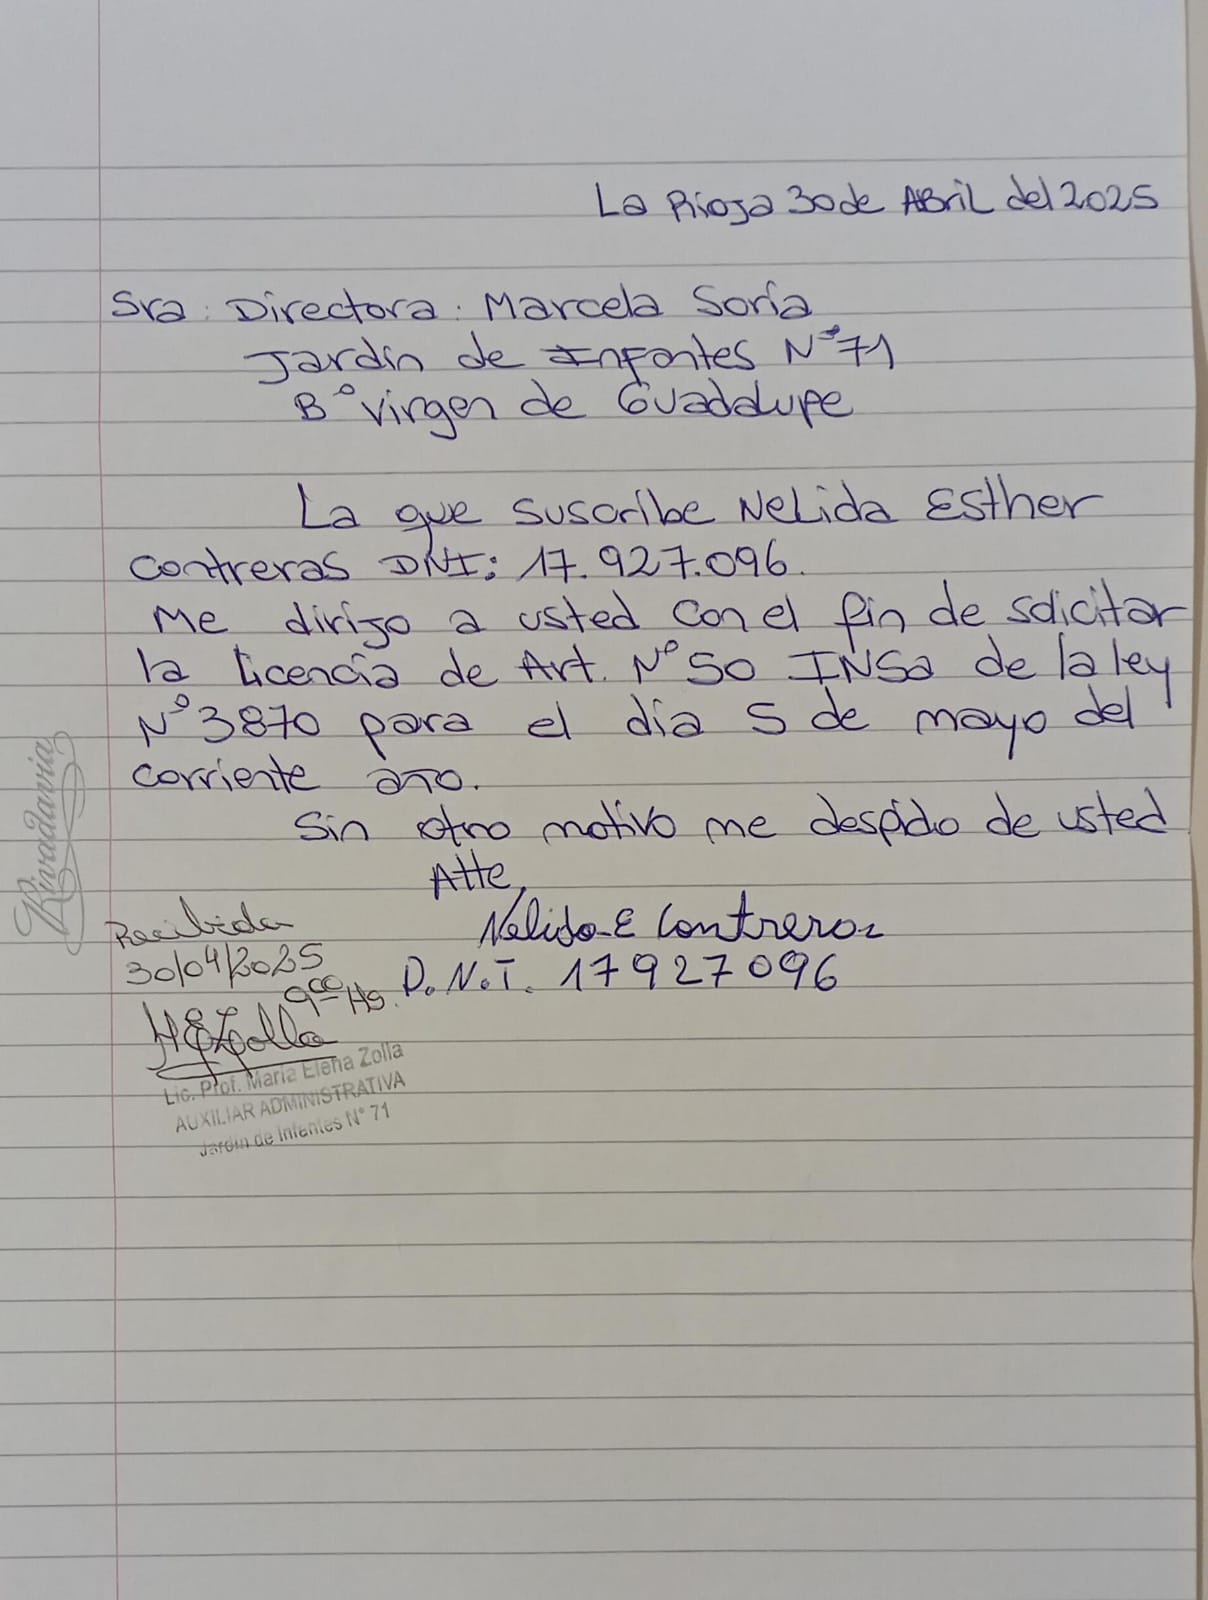 La Rioja 30 de ABriL del 2025
Sra: Directora: Marcela Soria
Jardin de Infantes N°71
B° Virgen de Guadalupe
La que suscribe NeLida Esther
Contreras DNI: 17.927.096.
Me dirijo a usted con el fin de solicitar
la licencia de Art. N°50 INSa de la ley
N°3870 para el dia 5 de mayo del
corriente año.
Sin otro motivo me despido de usted
Atte,
Nelida E Contreras
D.N.I. 17927096
Rivadavia
Recibida
30/04/2025
9:00 Hs.
MEZolla
Lic. Prof. María Elena Zolla
AUXILIAR ADMINISTRATIVA
Jardín de Infantes N° 71